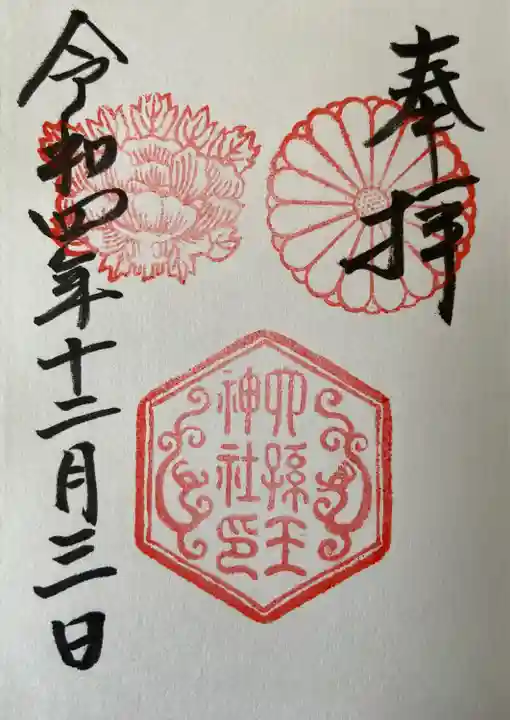 奉拝
六孫王
神社印
令和四年十二月三日